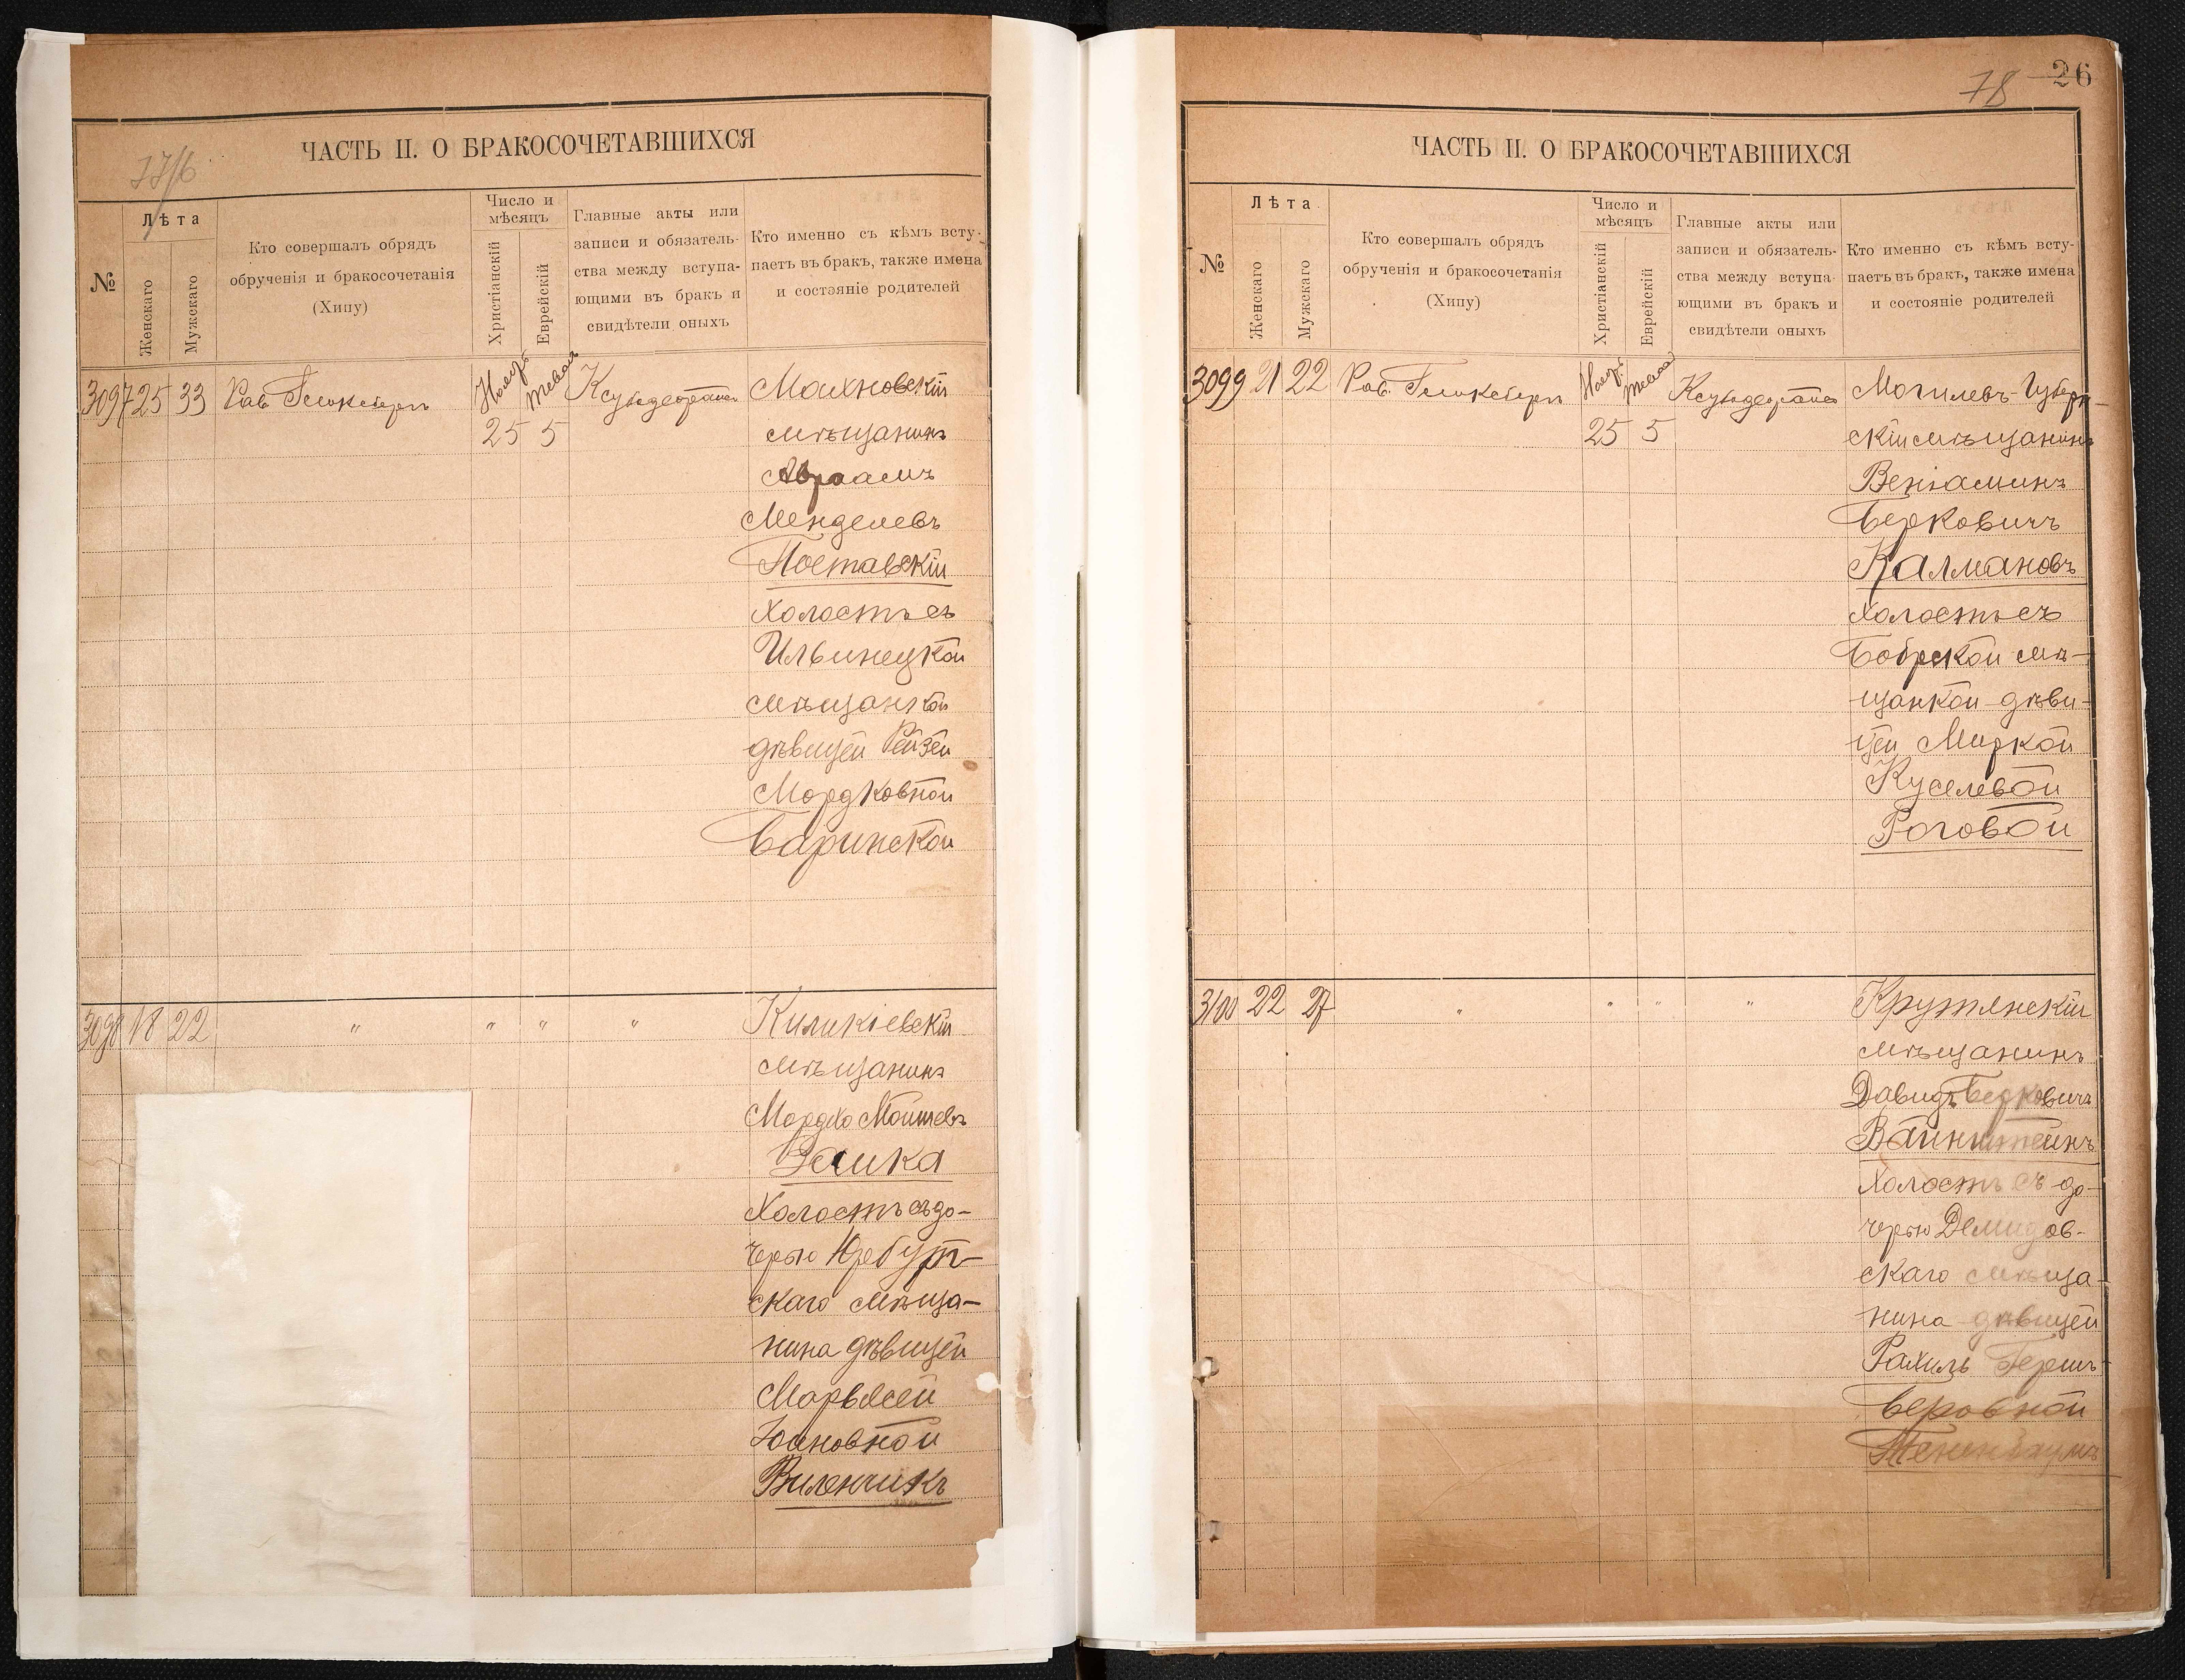 77/6
ЧАСТЬ II. О БРАКОСОЧЕТАВШИХСЯ
№
Лѣта
Женскаго
Мужскаго
Кто совершалъ обрядъ
обрученія и бракосочетанія
(Хипу)
Число и
мѣсяцъ
Христіанскій
Еврейскій
Главные акты или
записи и обязатель-
ства между вступа-
ющими въ бракъ и
свидѣтели оныхъ
Кто именно съ кѣмъ всту-
паетъ въ бракъ, также имена
и состояніе родителей
3097 25 33 Рав.
25 5
Махновскій
мѣщанинъ
Авраамъ
Менделевъ
Поставскій
холостъ съ
Ильинецкой
мѣщанкой
дѣвицей Рейзей
Мордковной
Баринской
3098 18 22 " " " "
Киликіевскій
мѣщанинъ
Мордко Мошевъ
Заика
Холостъ съ до-
черью
скаго мѣща-
нина дѣвицей
Марьясей
Виленчикъ
78 26
ЧАСТЬ II. О БРАКОСОЧЕТАВШИХСЯ
№
Лѣта
Женскаго
Мужскаго
Кто совершалъ обрядъ
обрученія и бракосочетанія
(Хипу)
Число и
мѣсяцъ
Христіанскій
Еврейскій
Главные акты или
записи и обязатель-
ства между вступа-
ющими въ бракъ и
свидѣтели оныхъ
Кто именно съ кѣмъ всту-
паетъ въ бракъ, также имена
и состояніе родителей
3099 21 22 Рав.
25 5
Могилевъ-Губерн-
скій мѣщанинъ
Веніаминъ
Берковичъ
Калмановъ
холостъ съ
Бобрской мѣ-
щанкой дѣви-
цей Миркой
Куселевой
Роговой
3100 22 27 " " " "
Крутянскій
мѣщанинъ
Давидъ Берковичъ
Вайнштейнъ
холостъ съ до-
черью Демидов-
скаго мѣща-
нина дѣвицей
Рахиль Гершъ-
Беровной